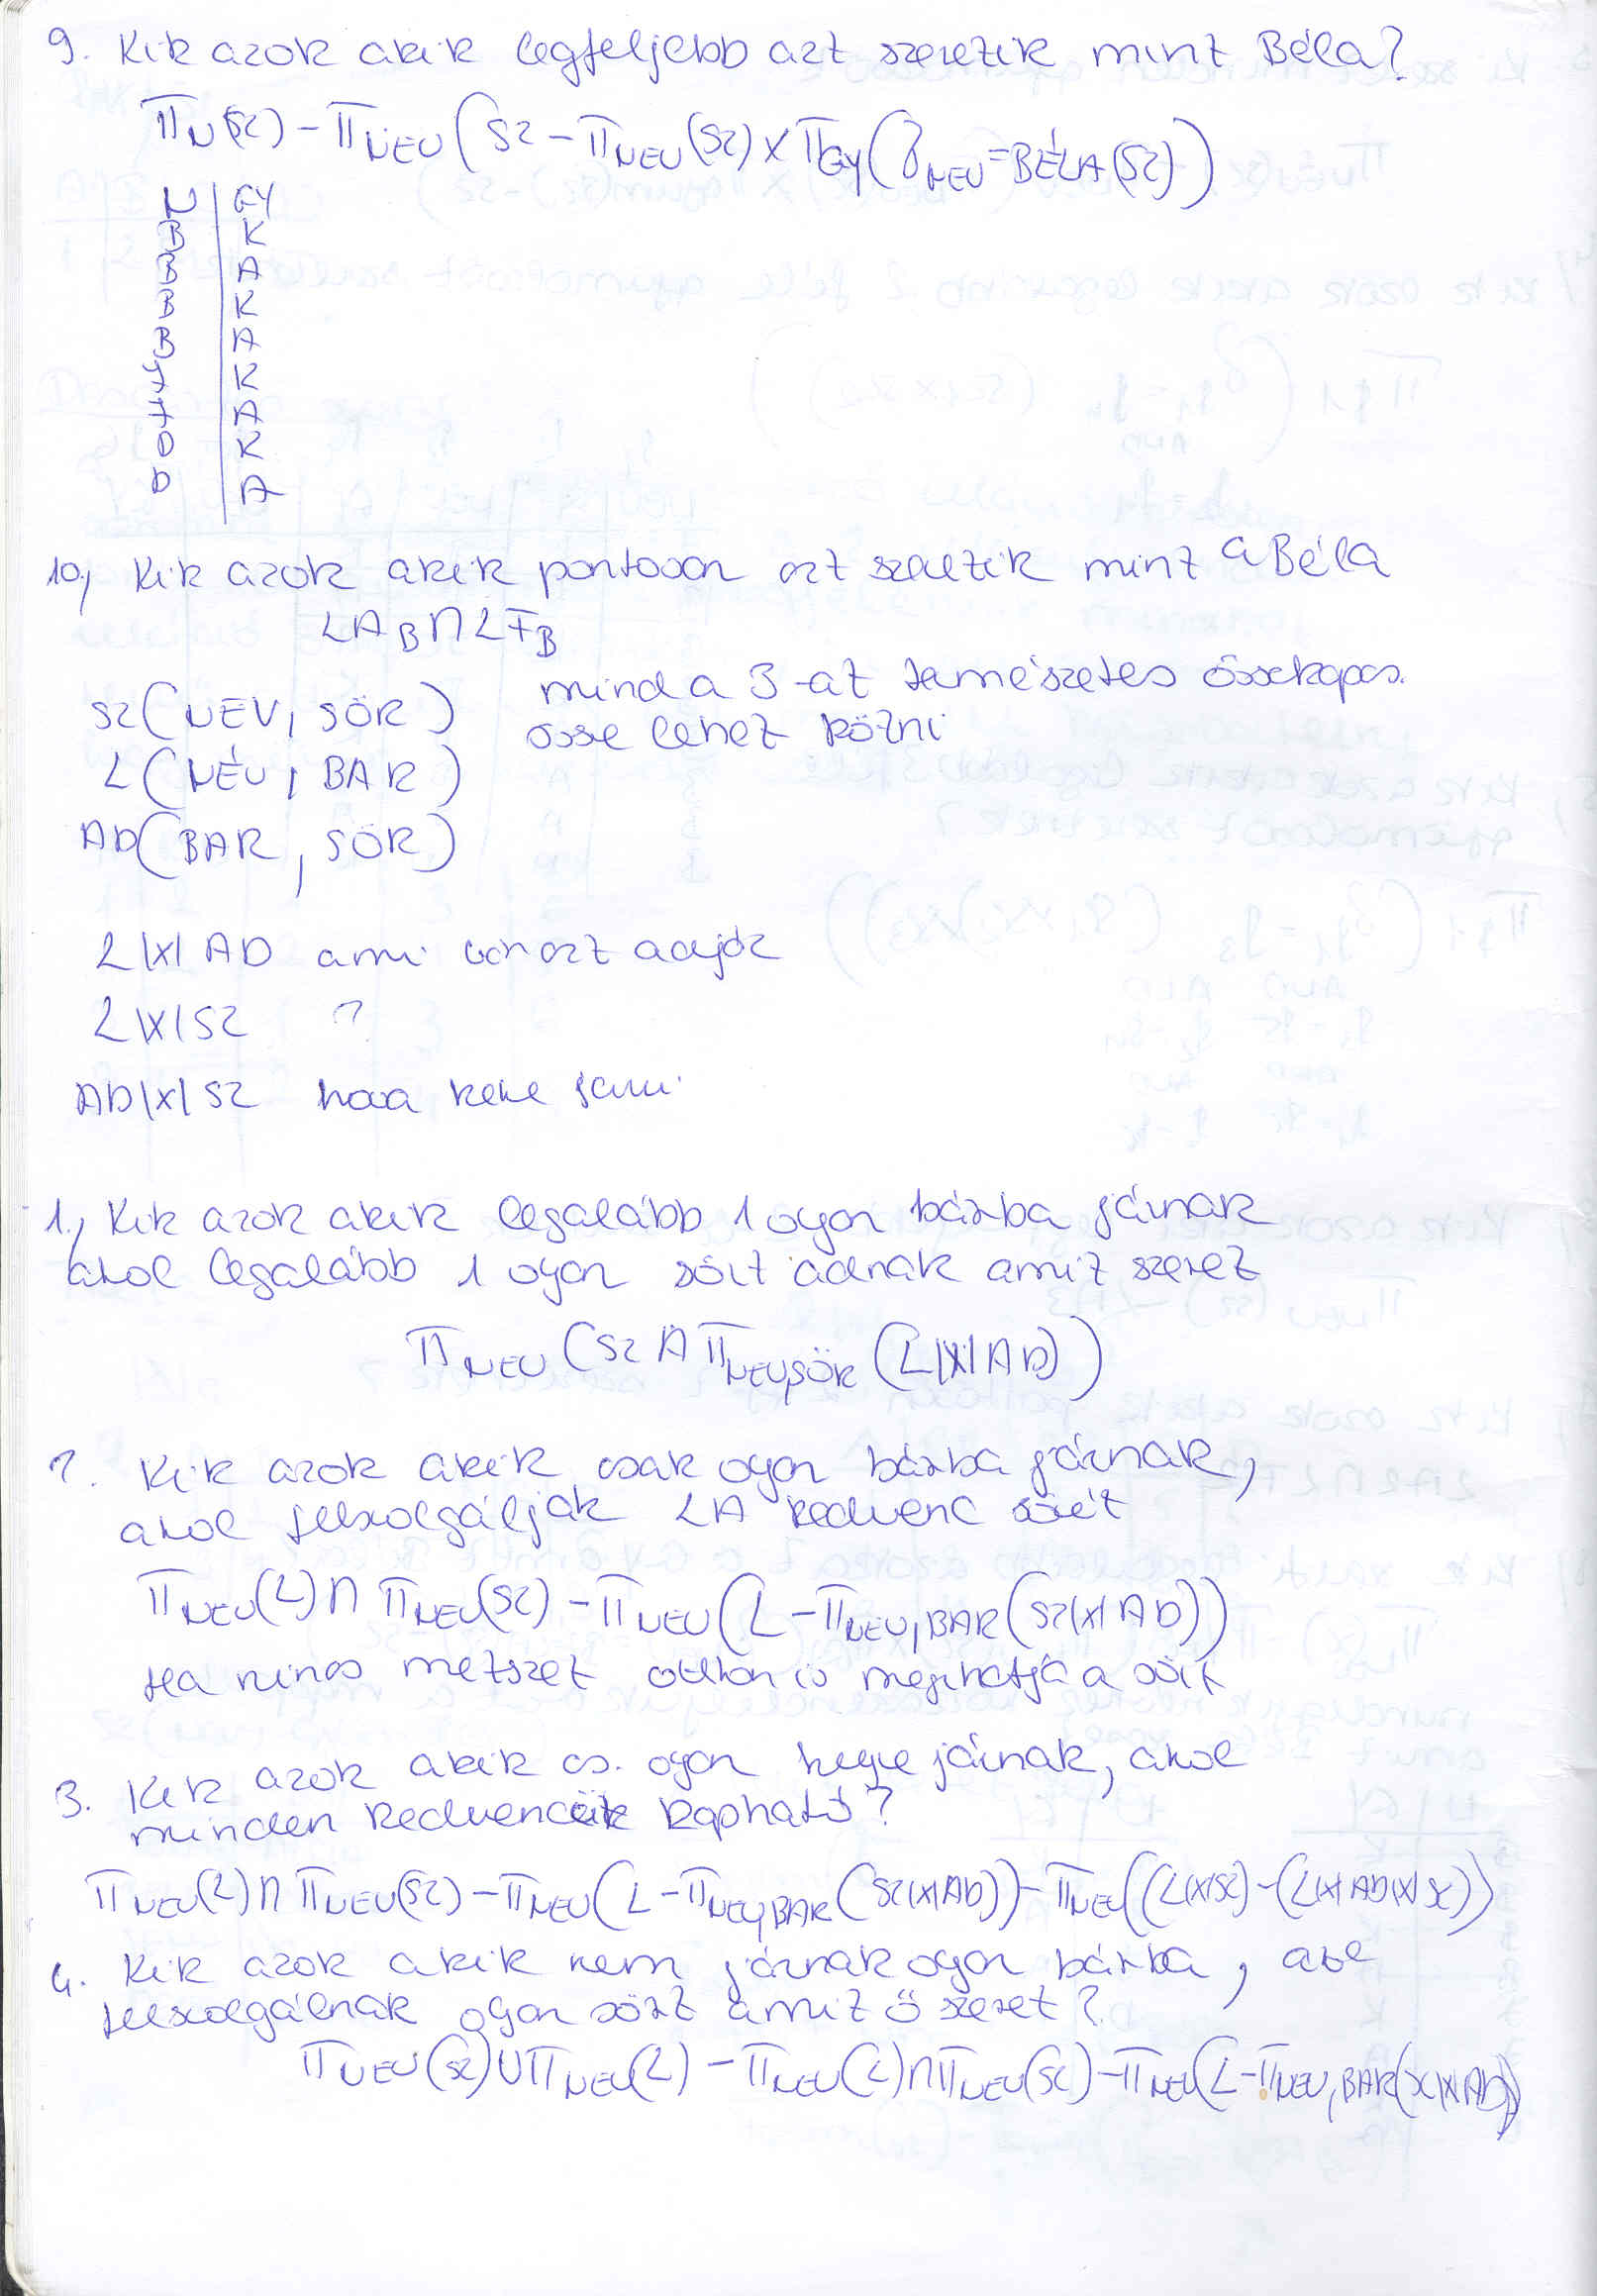 9. Kik azok akik legfeljebb azt szeretik mint Béla?
π_N(SZ) − π_NÉV (SZ − π_NEV(SZ) X π_GY(δ_NEV=BÉLA(SZ)))
N | GY
B | K
B | A
B | K
B | A
K
A
K
A
10, Kik azok akik pontosan azt szeretik mint a Béla
LA_B ∩ LF_B
SZ(NEV, SÖR) mind a 3-at természetes összekapcs.
L(NÉV, BAR) össe lehet kötni
AD(BAR, SÖR)
L |X| AD ami van azt adják
L |X| SZ ?
AD |X| SZ hova kéne járni
1., Kik azok akik legalább 1 olyan bárba járnak
ahol legalább 1 olyan sört adnak amit szeret
π_NEV (SZ ∩ π_NEV,SÖR (L|X|AD))
2. Kik azok akik csak olyan bárba járnak,
ahol felszolgálják LA kedvenc sörét
π_NEV(L) ∩ π_NEV(SZ) − π_NEV (L − π_NEV,BAR (SZ|X|AD))
Ha nincs metszet otthon is megihatja a sört
3. Kik azok akik cs. olyan helyre járnak, ahol
minden kedvencük kapható?
π_NEV(L) ∩ π_NEV(SZ) − π_NEV (L − π_NEV,BAR (SZ|X|AD)) − π_NEV((L|X|SZ) − (L|X|AD|X|SZ))
4. Kik azok akik nem járnak olyan bárba, ahol
felszolgálnak olyan sört amit ő szeret?
π_NEV(SZ) ∪ π_NEV(L) − π_NEV(L) ∩ π_NEV(SZ) − π_NEV(L − π_NEV,BAR(SZ|X|AD))